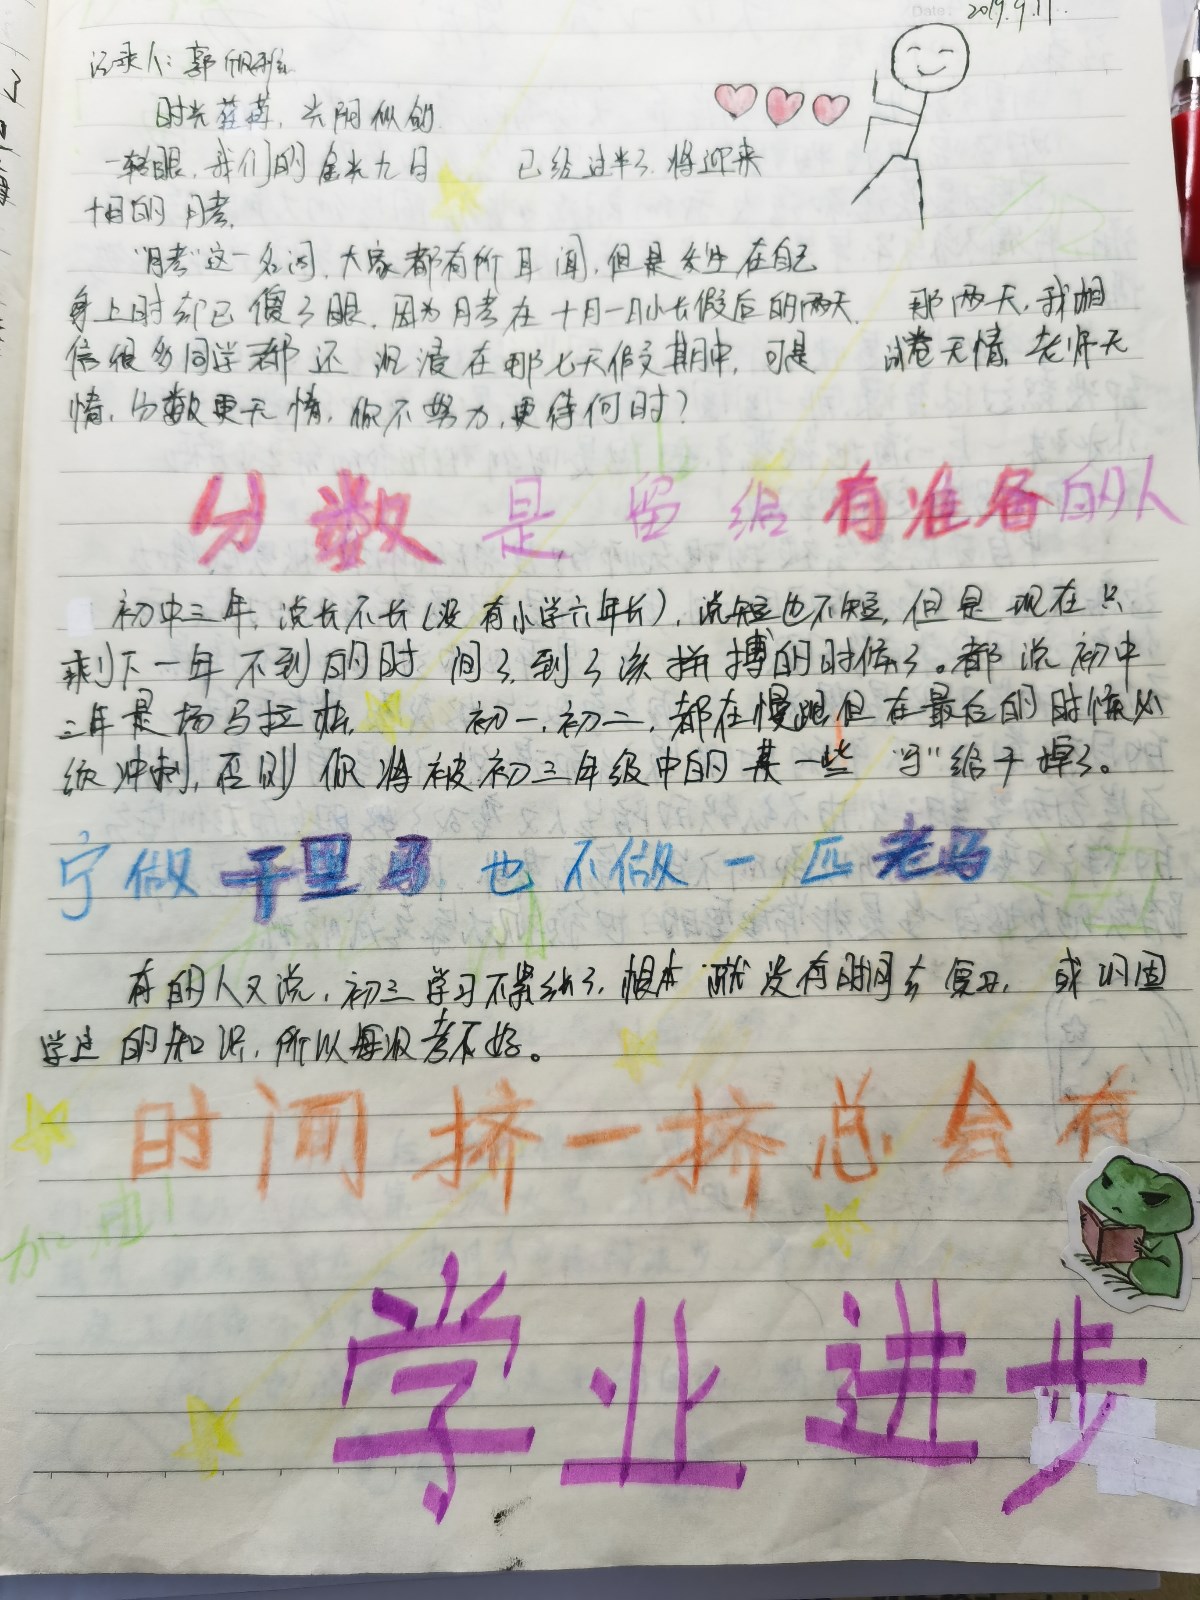 Date. 2019.9.11.
记录人: 郭
时光荏苒, 光阴似箭
一转眼, 我们的金光九月 已经过半了, 将迎来
十月的月考.
"月考"这一名词, 大家都有所耳闻, 但是发生在自己
身上时却已傻了眼. 因为月考在十月一日小长假后的两天. 那两天, 我相
信很多同学都还沉浸在那七天假文期中, 可是 试卷无情, 老师无
情, 分数更无情, 你不努力, 更待何时?
分数是留给有准备的人
初中三年, 说长不长(没有小学六年长), 说短也不短, 但是现在只
剩下一年不到的时间了, 到了该拼搏的时候了。都说初中
三年是场马拉松, 初一, 初二, 都在慢跑但在最后的时候必
须冲刺, 否则你将被初三年级中的某一些"马"给干掉了。
宁做千里马也不做一匹老马
有的人又说, 初三学习不累么了, 根本就没有时间去复习, 或巩固
学过的知识, 所以每次考不好。
时间挤一挤总会有
加油!
学业进步